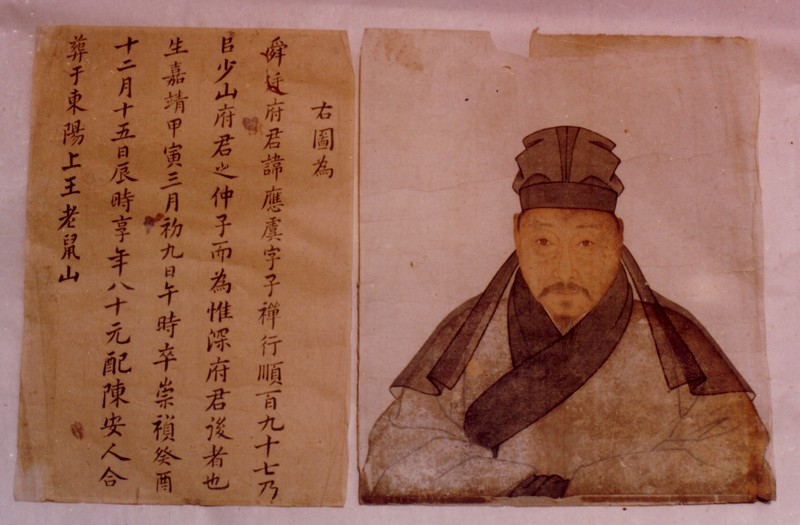 右圖為
舜廷府君諱應虞字子禪行順百九十七乃
臣少山府君之仲子而為惟深府君後者也
生嘉靖甲寅三月初九日午時卒崇禎癸酉
十二月十五日辰時享年八十元配陳安人合
葬于東陽上王老鼠山